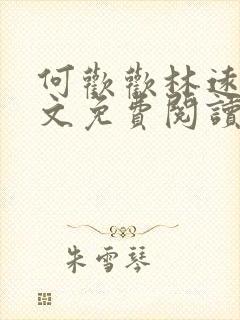 何歡歡林遠
文免費閱讀
朱雪琴